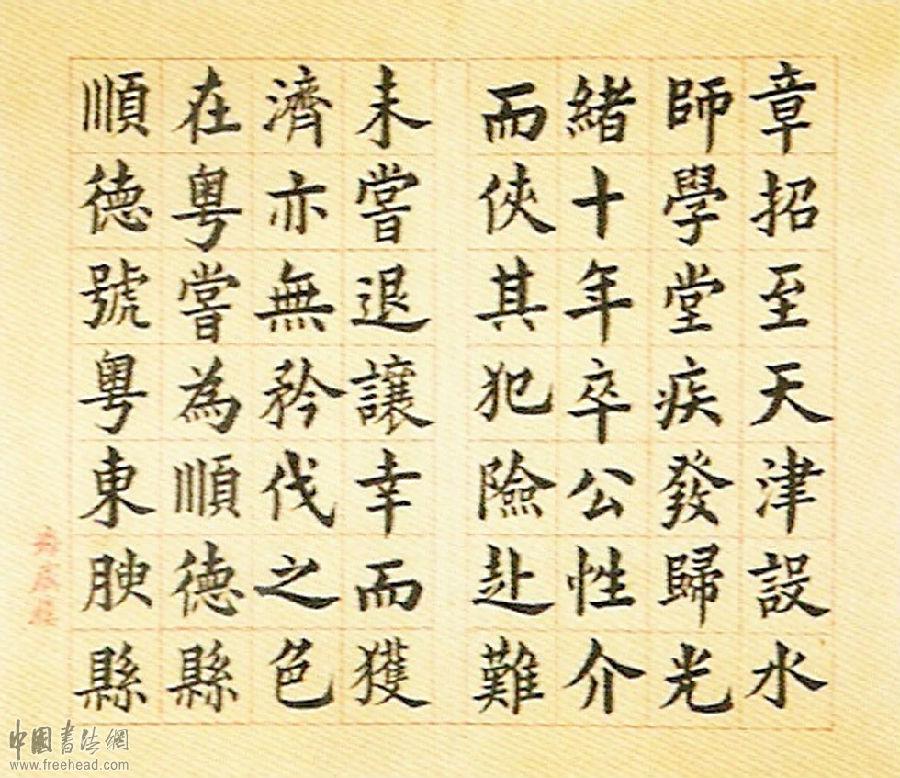 章招至天津設水
師學堂疾發歸光
緒十年卒公性介
而俠其犯險赴難
未嘗退讓幸而獲
濟亦無矜伐之色
在粤嘗為順德縣
順德號粤東腴縣
中國書法網
www.freehead.com